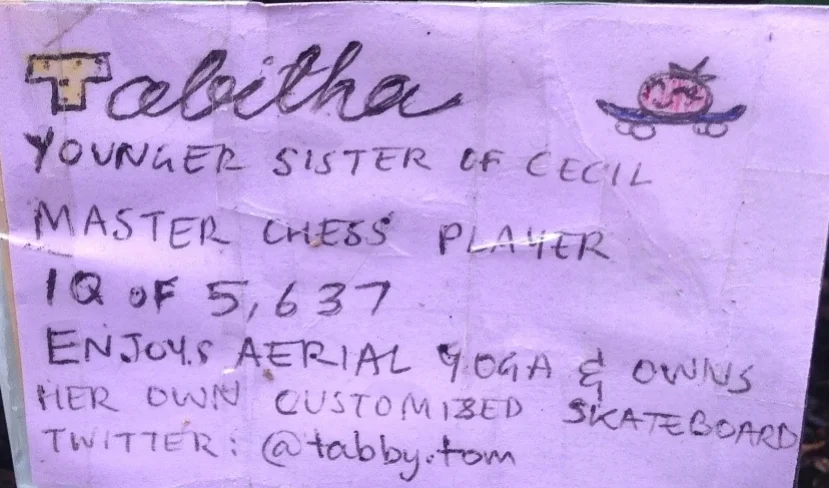 Tabitha
YOUNGER SISTER OF CECIL
MASTER CHESS PLAYER
IQ OF 5,637
ENJOYS AERIAL YOGA & OWNS
HER OWN CUSTOMISED SKATEBOARD
TWITTER: @tabby.tom